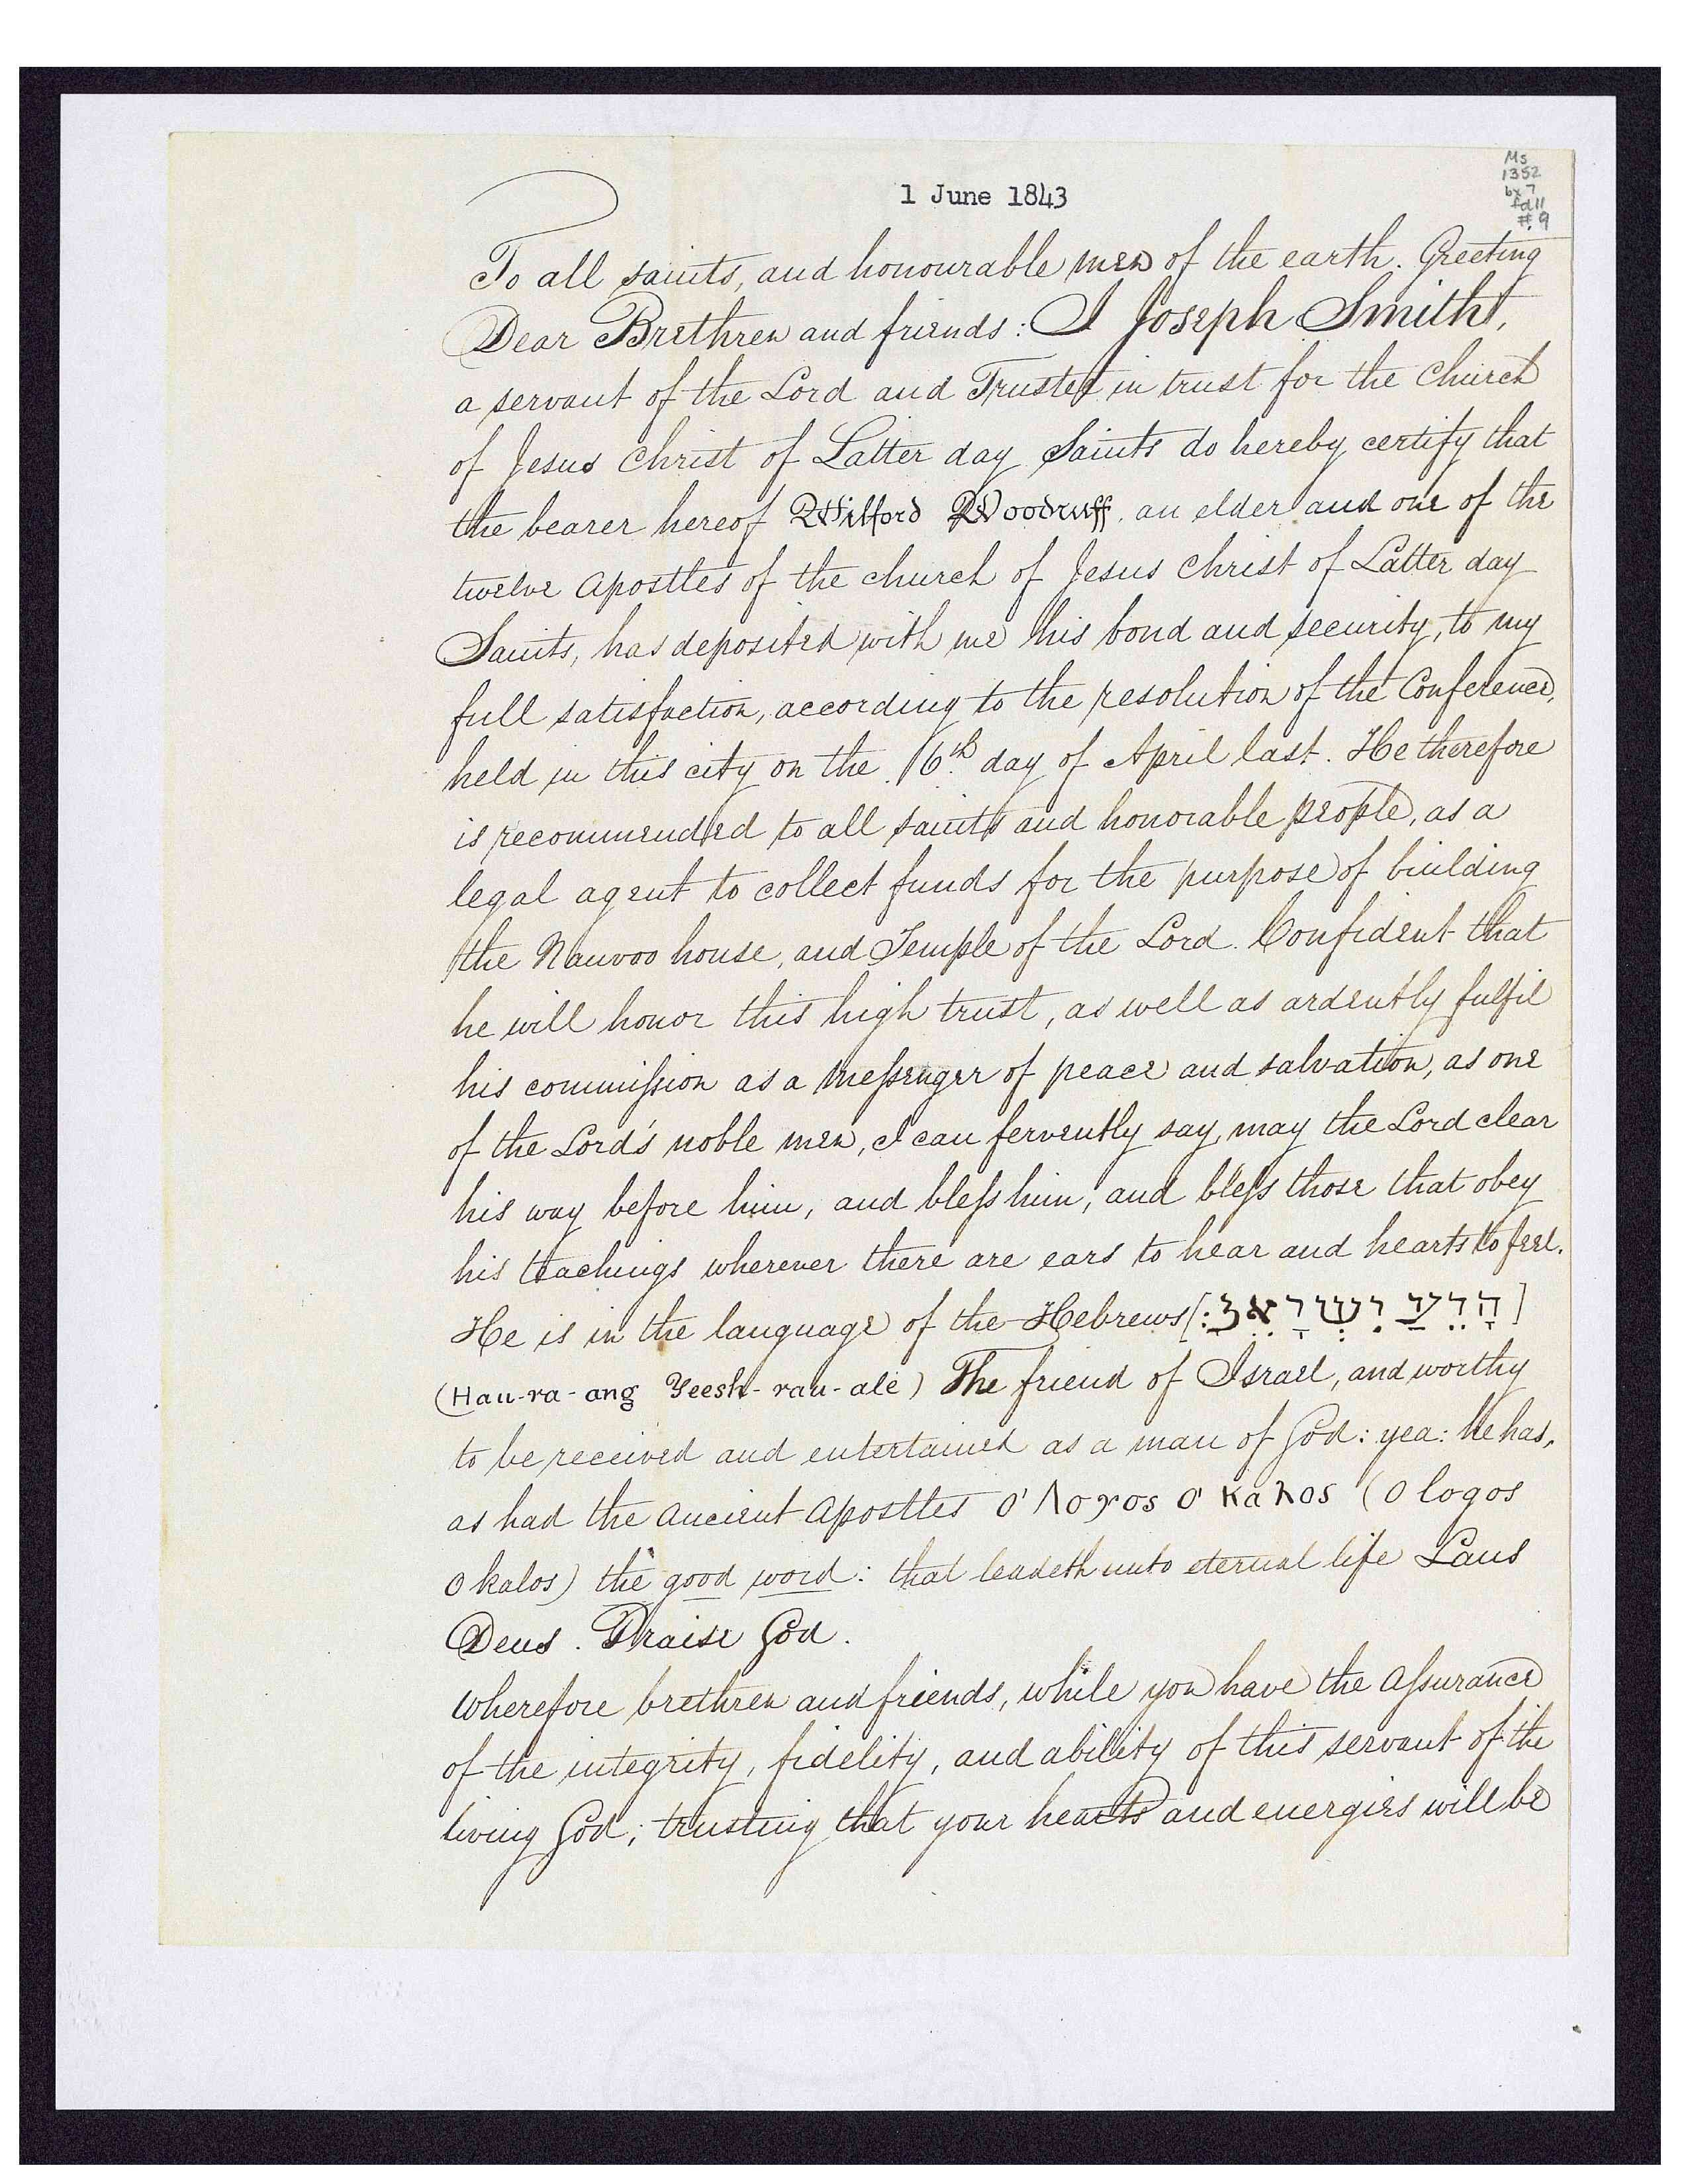 1 June 1843
Ms
1352
bx 7
fd 11
#9
To all saints, and honourable men of the earth. Greeting
Dear Brethren and friends: I Joseph Smith,
a servant of the Lord and Trustee in trust for the Church
of Jesus Christ of Latter day Saints do hereby certify that
the bearer hereof Wilford Woodruff, an elder and one of the
twelve Apostles of the church of Jesus Christ of Latter day
Saints, has deposited with me his bond and security, to my
full satisfaction, according to the resolution of the Conference,
held in this city on the 6th day of April last. He therefore
is recommended to all saints and honorable people, as a
legal agent to collect funds for the purpose of building
the Nauvoo house, and Temple of the Lord. Confident that
he will honor this high trust, as well as ardently fulfil
his commission as a messenger of peace and salvation, as one
of the Lord's noble men, I can fervently say, may the Lord clear
his way before him, and bless him, and bless those that obey
his teachings wherever there are ears to hear and hearts to feel.
He is in the language of the Hebrews [הָרֵעַ יִשְׂרָאֵל:]
(Hau-ra-ang Yeesh-rau-ale) The friend of Israel, and worthy
to be received and entertained as a man of God: yea: he has,
as had the ancient Apostles O' Λογος O' καλος (O logos
O kalos) the good word: that leadeth unto eternal life Laus
Deus. Praise God.
Wherefore brethren and friends, while you have the assurance
of the integrity, fidelity, and ability of this servant of the
living God; trusting that your hearts and energies will be